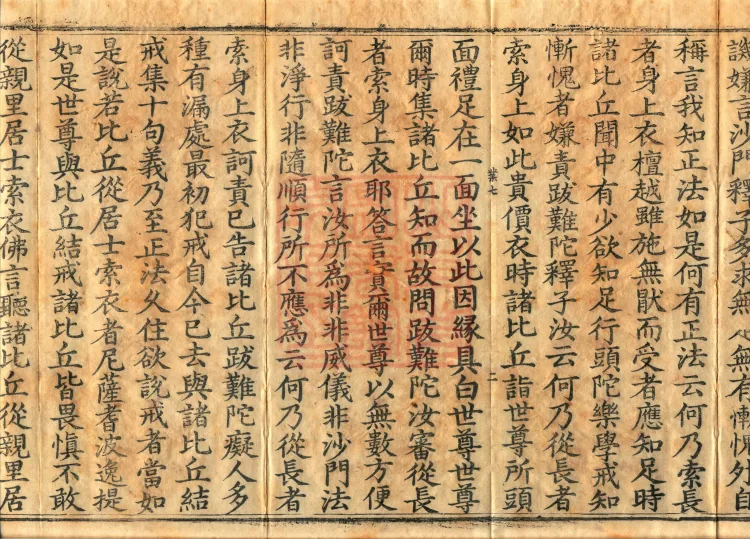 譏嫌言沙門釋子多求無無有慚愧外自
稱言我知正法如是何有正法云何乃索長
者身上衣檀越雖施無猒而受者應知足時
諸比丘聞中有少欲知足行頭陀樂學戒知
慚愧者嫌責跋難陀釋子汝云何乃從長者
索身上如此貴價衣時諸比丘詣世尊所頭
葉七 二
面禮足在一面坐以此因緣具白世尊世尊
爾時集諸比丘知而故問跋難陀汝審從長
者索身上衣耶答言實爾世尊以無數方便
訶責跋難陀言汝所爲非非威儀非沙門法
非淨行非隨順行所不應爲云何乃從長者
索身上衣訶責已告諸比丘跋難陀癡人多
種有漏處最初犯戒自今已去與諸比丘結
戒集十句義乃至正法久住欲說戒者當如
是說若比丘從居士索衣者尼薩耆波逸提
如是世尊與比丘結戒諸比丘皆畏慎不敢
從親里居士索衣佛言聽諸比丘從親里居